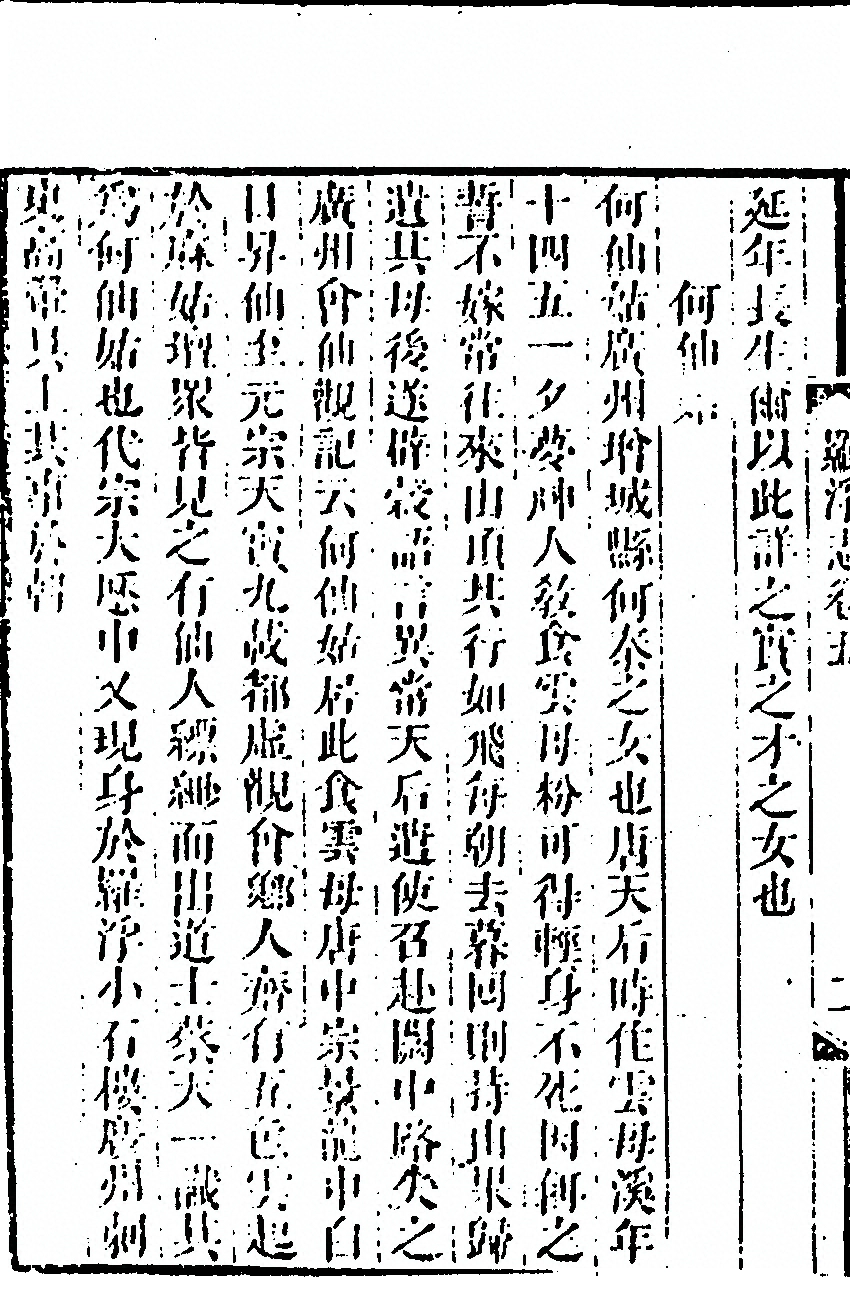 羅浮志卷五
二
延年長生爾以此詳之實之才之女也
何仙姑
何仙姑廣州增城縣何泰之女也唐天后時住雲母溪年
十四五一夕夢神人教食雲母粉可得輕身不死因餌之
誓不嫁常往來山頂其行如飛每朝去暮回則持山果歸
遺其母後遂辟穀語言異常天后遣使召赴闕中路失之
廣州會仙觀記云何仙姑居此食雲母唐中宗景龍中白
日昇仙至元宗天寶九載都虛觀會鄉人齋有五色雲起
於麻姑壇眾皆見之有仙人縹緲而出道士蔡天一識其
為何仙姑也代宗大歷中又現身於羅浮小石樓廣州刺
史高皇具上其事於朝